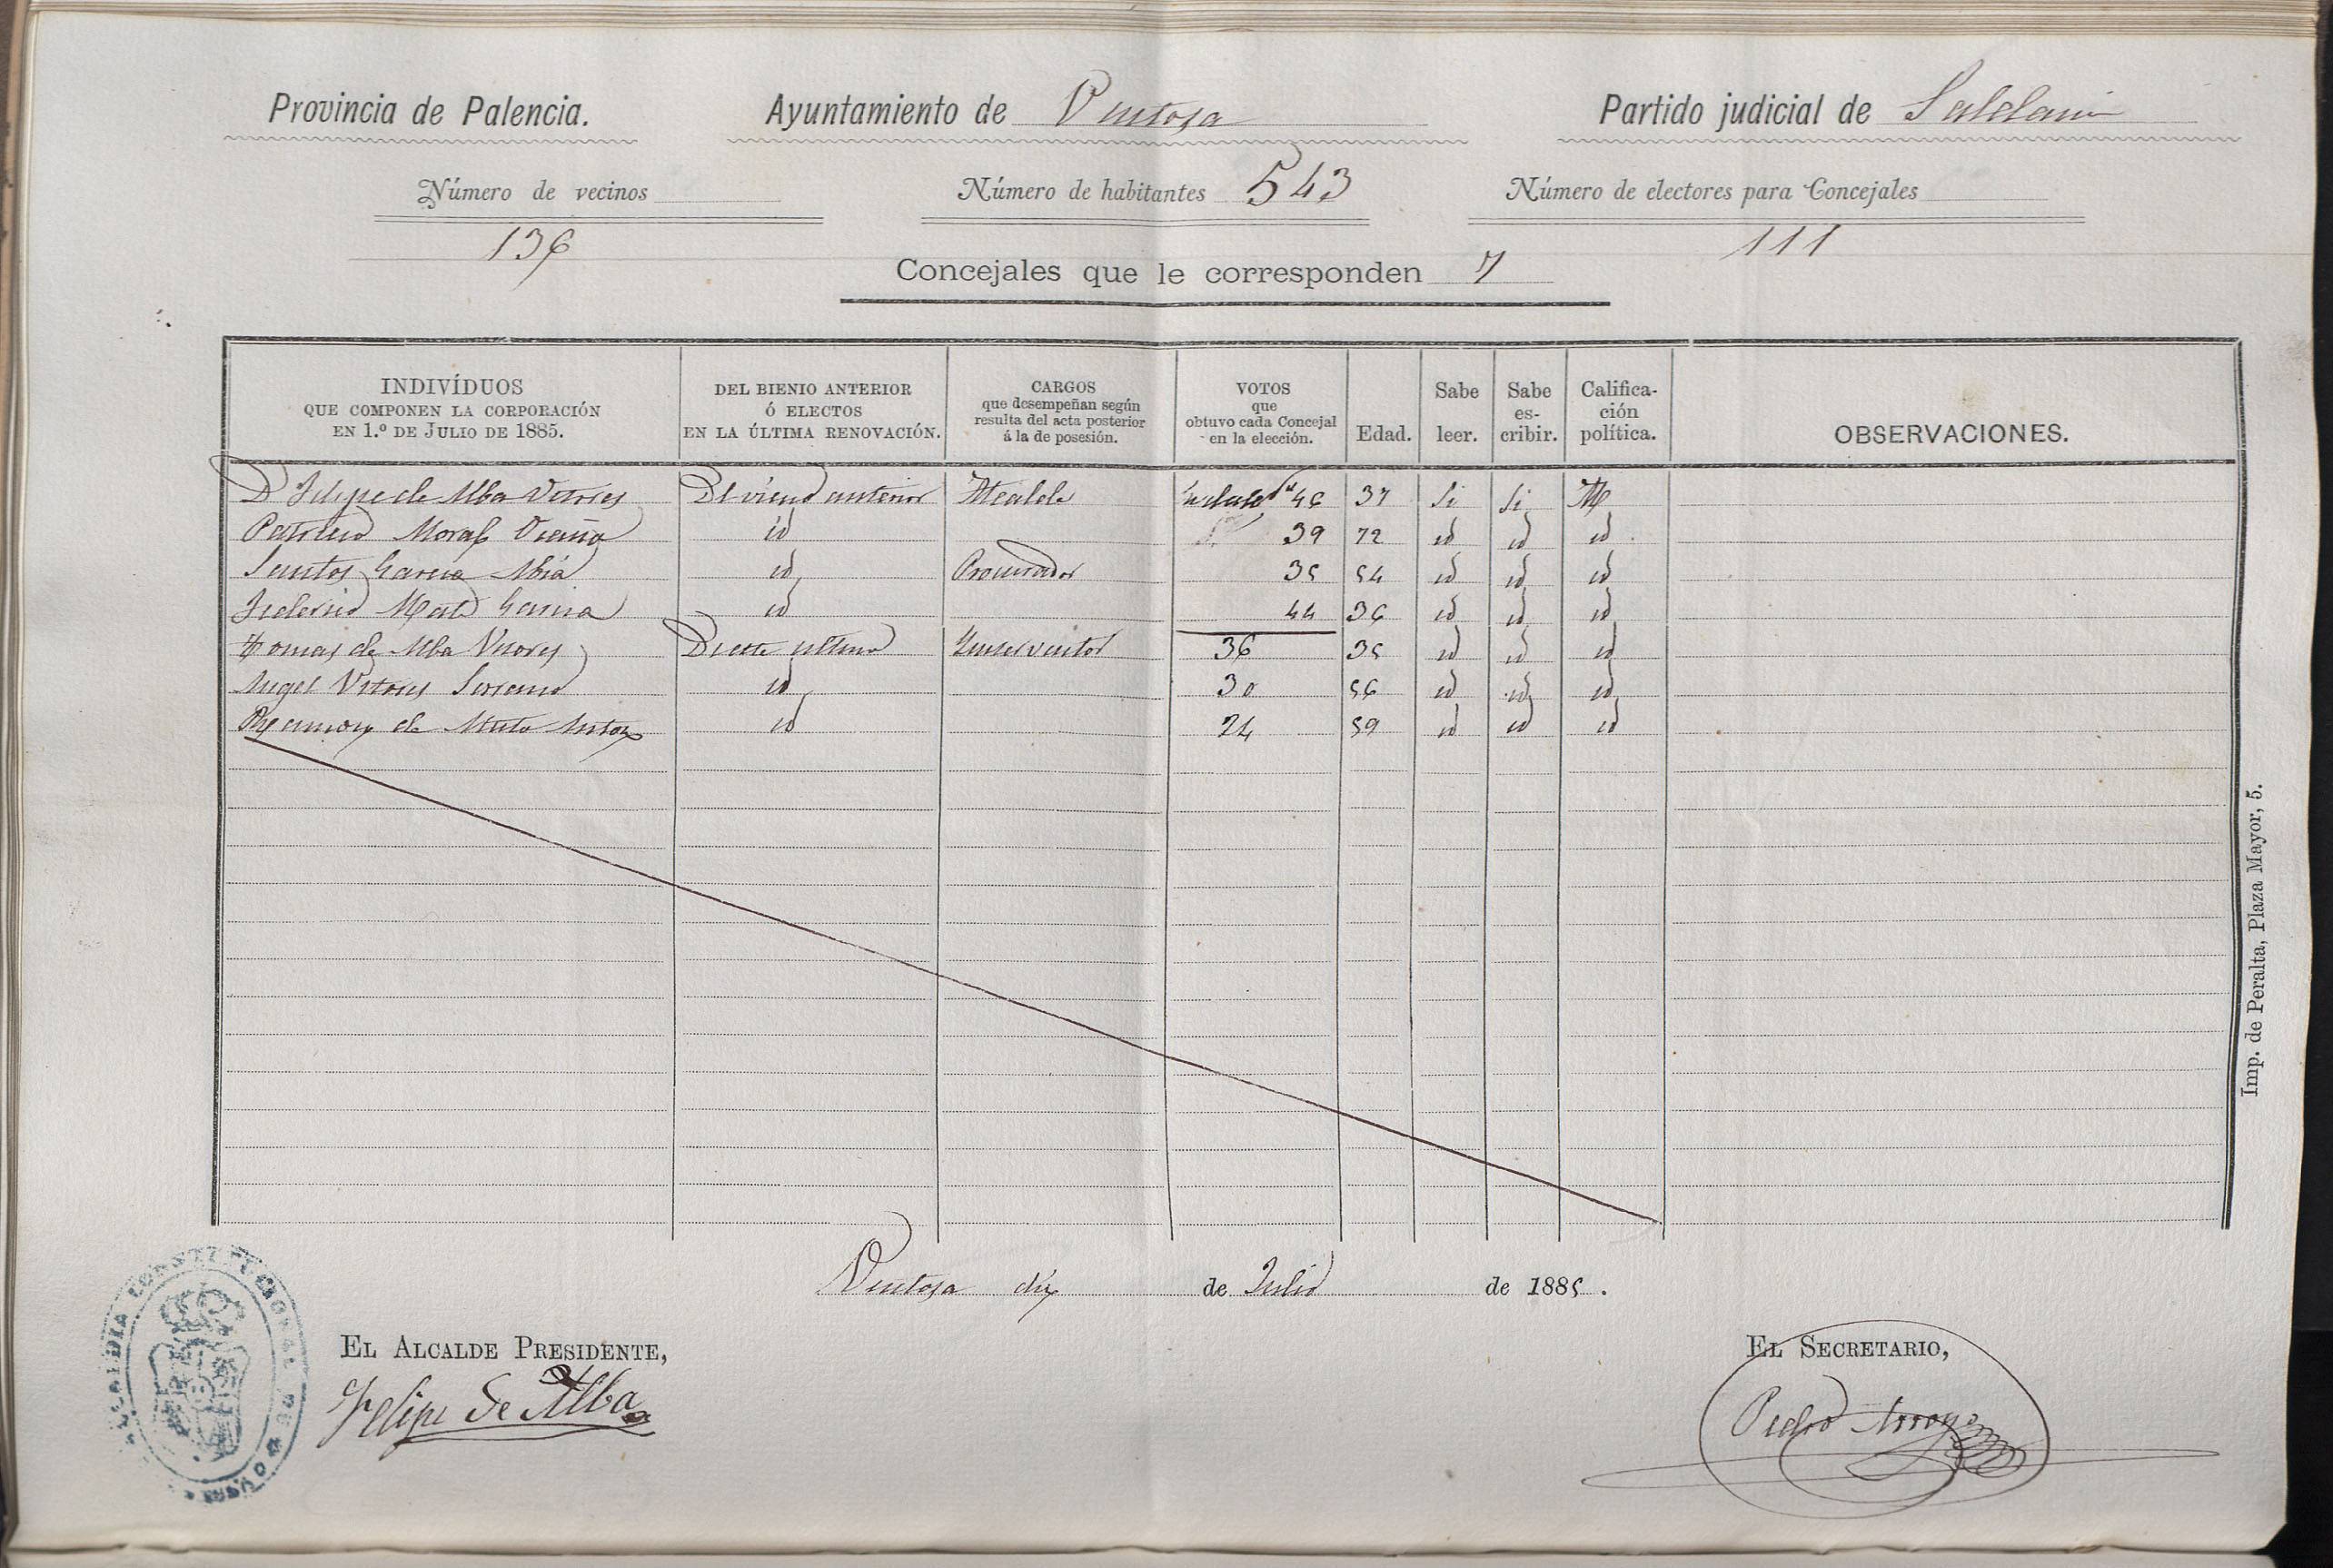 Provincia de Palencia. Ayuntamiento de Ventosa Partido judicial de Saldaña
Número de vecinos Número de habitantes 543 Número de electores para Concejales
136 111
Concejales que le corresponden 7
INDIVÍDUOS
QUE COMPONEN LA CORPORACIÓN
EN 1.º DE JULIO DE 1885.
DEL BIENIO ANTERIOR
Ó ELECTOS
EN LA ÚLTIMA RENOVACIÓN.
CARGOS
que desempeñan según
resulta del acta posterior
á la de posesión.
VOTOS
que
obtuvo cada Concejal
en la elección.
Edad.
Sabe
leer.
Sabe
es-
cribir.
Califica-
ción
política.
OBSERVACIONES.
D Felipe de Alba Vitores Del vienio anterior Alcalde 46 37 Si Si M
Patricio Moral id 39 72 id id id
Santos Garcia Abia id Procurador 35 54 id id id
Federico Garcia id 44 36 id id id
Tomas de Alba Vitores De este ultimo Interventor 36 35 id id id
Angel Vitores Serrano id 30 56 id id id
Ramon de id 24 59 id id id
Ventosa diez de Julio de 1885.
EL ALCALDE PRESIDENTE, EL SECRETARIO,
Felipe de Alba Pedro Arroyo
ALCALDIA CONSTITUCIONAL DE
Imp. de Peralta, Plaza Mayor, 5.